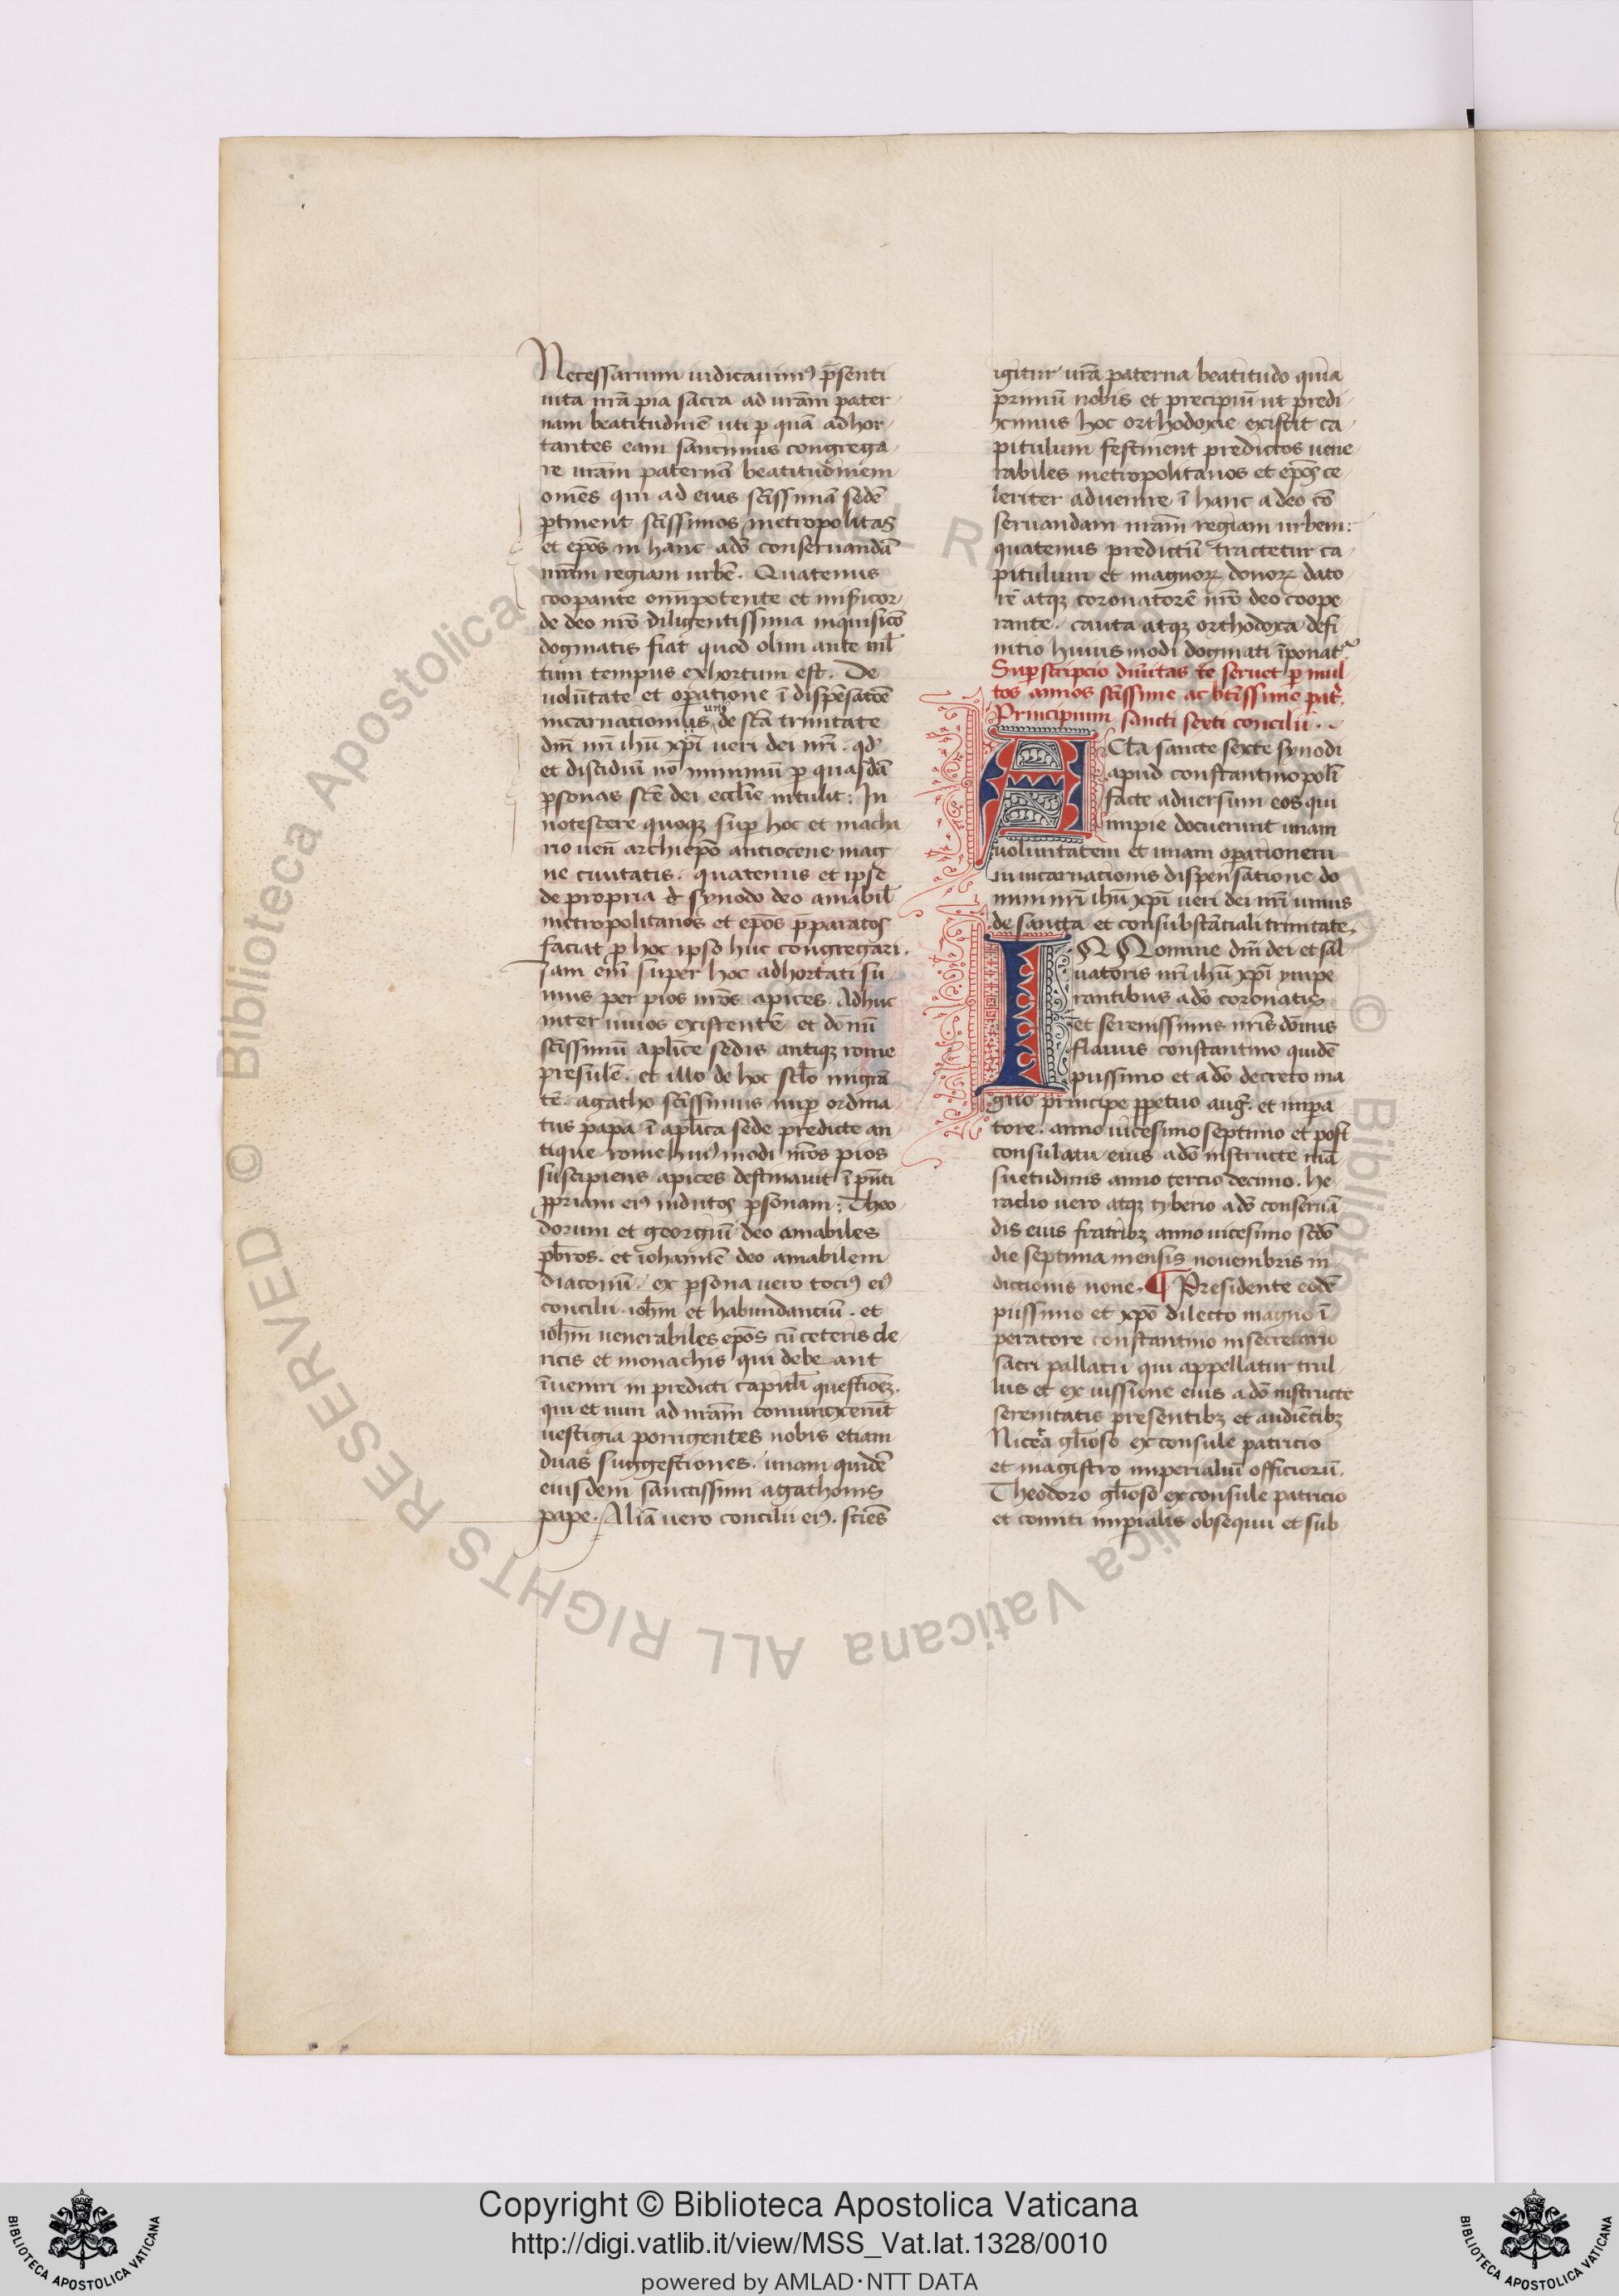 Necessarium iudicauimꝰ p̄senti
iuta nr̄a pia sacra ad ur̄am pater
nam beatitudinē uti p quā adhor
tantes eam sancimus congrega
re ur̄am paternā beatitudinem
omēs qui ad eius sc̄issimā sedē
ꝑtinent sc̄issimos metropolitas
et ep̄os in hanc ado᷒ conseruandā
nr̄am regiam urbē. Quatenus
coopante omīpotente et misicor
de deo nr̄o diligentissima inquisicō
dogmatis fiat quod olim ante ml̄
tum tempus exhortum est. De
uolūtate et opatione ī dispēsatōe
incarnationis unius de sc̄a trinitate
dn̄i nr̄i ihū xp̄i ueri dei nr̄i. qd
et discidiū nō minimū p quasdā
ꝑsonas sc̄e dei eccl̄ie intulit: In
notescere quoqꝫ sup hoc et macha
rio uen̄ archiep̄o antiocene mag
ne ciuitatis. quatenus et ipse
de propria & synodo deo amabil̄
metropolitanos et ep̄os p̄paratos
faciat p hoc ipso huc congregari.
Iam eni᷒ super hoc adhortati su
mus per pios nr̄os apices. Adhuc
inter uiuos existentē et dōnū
sc̄issimū apl̄ice sedis antiqꝫ rome
presulē. et illo de hoc scl̄o migrā
te. agatho sc̄issimus nup ordina
tus papa ī apl̄ica sede predicte an
tique rome huiꝰmodi nr̄os pios
suscipiens apices destinauit ī pn̄ti
ꝓpriam eiꝰ indutos ꝑsonam: Theo
dorum et georgiū deo amabiles
pb̄ros. et iohannē deo amabilem
diaconū. ex ꝑsona uero tociꝰ eiꝰ
concilii ioh̄m et habundanciū. et
ioh̄m uenerabiles ep̄os cū ceteris cle
ricis et monachis qui debeant
īueniri in predicti capitl̄i questiōeꝫ.
qui et nun ad nr̄am coniunxerūt
uestigia porrigentes nobis etiam
duas suggestiones. unam quidē
eiusdem sanctissimi agathonis
pape. Aliā uero concilii eiꝰ. sciēs
igitur ur̄a paterna beatitudo quia
primū nobis et precipiū ut predi
ximus hoc orthodoxie existit ca
pitulum festinent predictos uene
rabiles metropolitanos et ep̄os ce
leriter aduenire ī hanc a deo cō
seruandam nr̄am regiam urbem:
quatenus predictū tractetur ca
pitulum et magnoꝝ donoꝝ dato
rē atqꝫ coronatorē nr̄o deo coope
rante. cauta atqꝫ orthodoxa defi
nitio huiusmodi dogmati īponatʳ
Supscripcio diuītas te seruet p mul
tos annos sc̄issime ac bt̄issime pat̄.
Principium sancti sexti concilii.
ACta sancte sexte synodi
apud constantinopolī
facte aduersum eos qui
impie docuerunt unam
uoluntatem et unam opationem
in incarnationis dispensatione do
mini nr̄i ihū xp̄i ueri dei nr̄i unius
de sancta et consubstātiali trinitate.
IN Nomine dn̄i dei et sal
uatoris nr̄i ihū xp̄i ympe
rantibus a dō coronatis
et serenissimis nr̄is dōmis
flauus constantino quidē
piissimo et a dō decreto ma
gno principe ꝑpetuo auḡ. et impa
tore. anno uicesimo septimo et post
consulatu eius a dō instructe mā
suetudinis anno tercio decimo. he
raclio uero atqꝫ tyberio a dō conseruā
dis eius fratribꝫ anno uicesimo sc̄do
die septima mensis nouembris in
dictionis none. ¶ Presidente eodē
piissimo et xp̄o dilecto magno ī
peratore constantino in secretario
sacri pallacii qui appellatur trul
lus et ex iussione eius a dō instructe
serenitatis presentibꝫ et audiētibꝫ
Nicera gl̄ioso ex consule patricio
et magistro imperialiū officiorū.
Theodoro gl̄ioso ex consule patricio
et comiti impialis obsequii et sub
Copyright © Biblioteca Apostolica Vaticana
http://digi.vatlib.it/view/MSS_Vat.lat.1328/0010
powered by AMLAD·NTT DATA
BIBLIOTECA APOSTOLICA VATICANA
BIBLIOTECA APOSTOLICA VATICANA
© Biblioteca Apostolica Vaticana ALL RIGHTS RESERVED